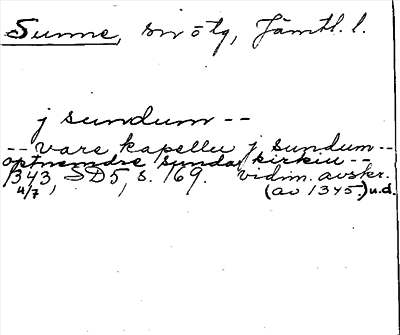 Sunne, sn o tg, Jämtl. l.
j sundum --
-- vare kapellu j sundum --
optnemdre sunda kirkiu --
1343 4/7, SD5, s. 169. vidim. avskr.
(av 1345.) u.d.